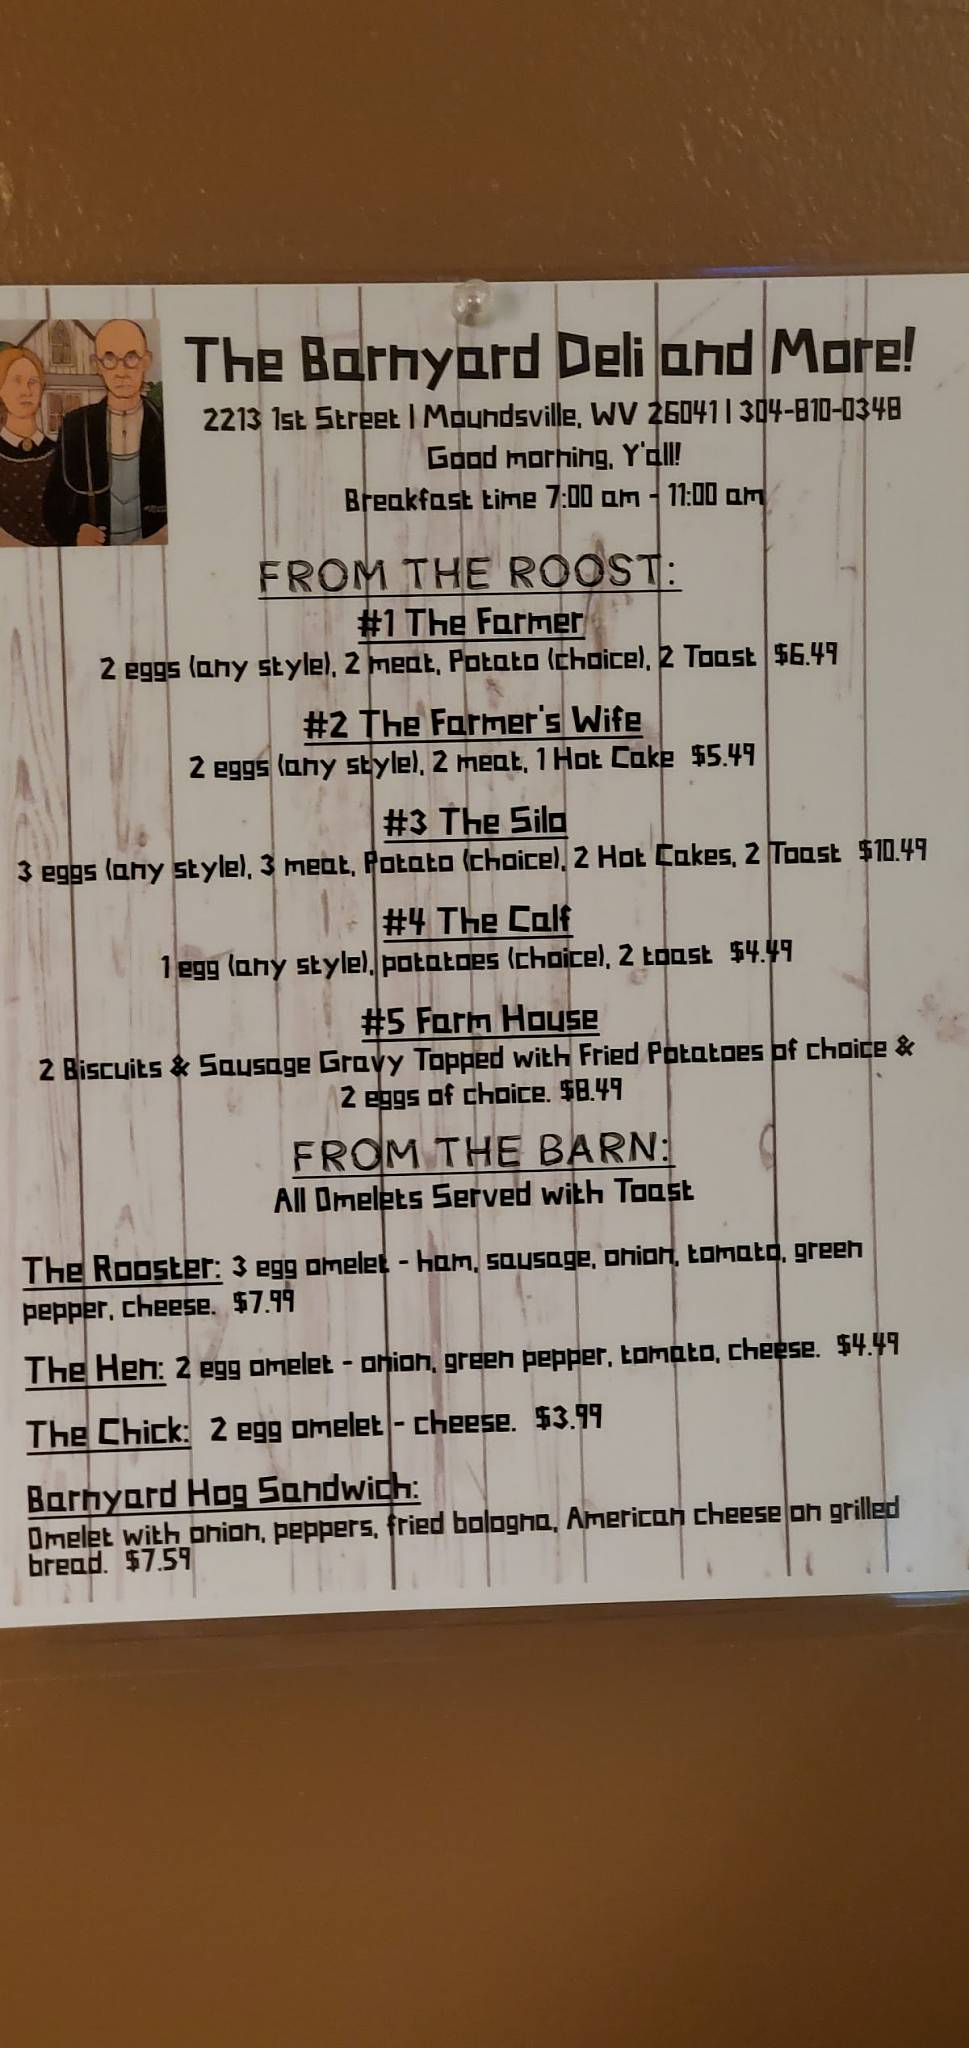 The Barnyard Deli and More!
2213 1st Street | Moundsville, WV 26041 | 304-810-0348
Good morning, Y'all!
Breakfast time 7:00 am - 11:00 am
FROM THE ROOST:
#1 The Farmer
2 eggs (any style), 2 meat, Potato (choice), 2 Toast $6.49
#2 The Farmer's Wife
2 eggs (any style), 2 meat, 1 Hot Cake $5.49
#3 The Silo
3 eggs (any style), 3 meat, Potato (choice), 2 Hot Cakes, 2 Toast $10.49
#4 The Calf
1 egg (any style), potatoes (choice), 2 toast $4.49
#5 Farm House
2 Biscuits & Sausage Gravy Topped with Fried Potatoes of choice &
2 eggs of choice. $8.49
FROM THE BARN:
All Omelets Served with Toast
The Rooster: 3 egg omelet - ham, sausage, onion, tomato, green
pepper, cheese. $7.99
The Hen: 2 egg omelet - onion, green pepper, tomato, cheese. $4.49
The Chick: 2 egg omelet - cheese. $3.99
Barnyard Hog Sandwich:
Omelet with onion, peppers, fried bologna, American cheese on grilled
bread. $7.59